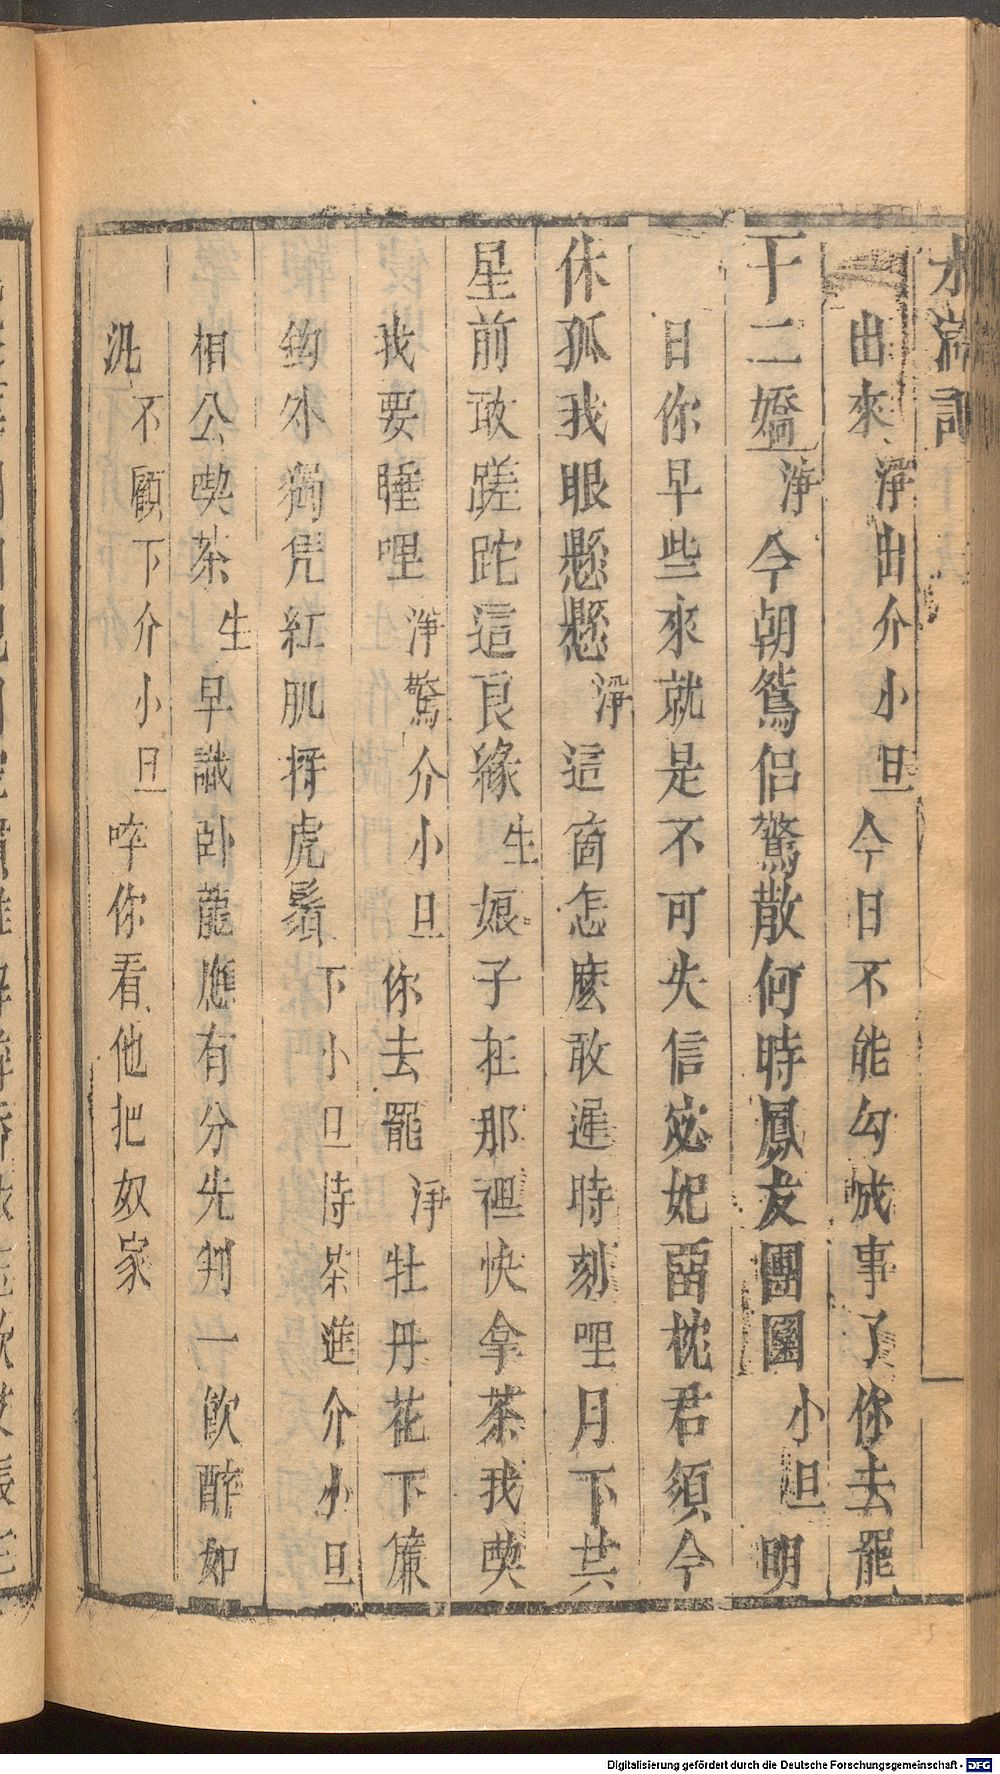 水滸記
出來淨出介小旦今日不能勾成事了你去罷
十二嬌淨今朝鴛侶驚散何時鳳友團圓小旦明
日你早些來就是不可失信宓妃留枕君須今
休孤我眼懸懸淨這箇怎麽敢遲時刻哩月下共
星前敢蹉跎這良緣生娘子在那裡快拿茶我喫
我要睡哩淨驚介小旦你去罷淨牡丹花下簾
鈎外獨凭紅肌捋虎鬚下小旦持茶進介小旦
相公喫茶生早識卧龍應有分先判一飲醉如
泥不顧下介小旦啐你看他把奴家
Digitalisierung gefördert durch die Deutsche Forschungsgemeinschaft - DFG